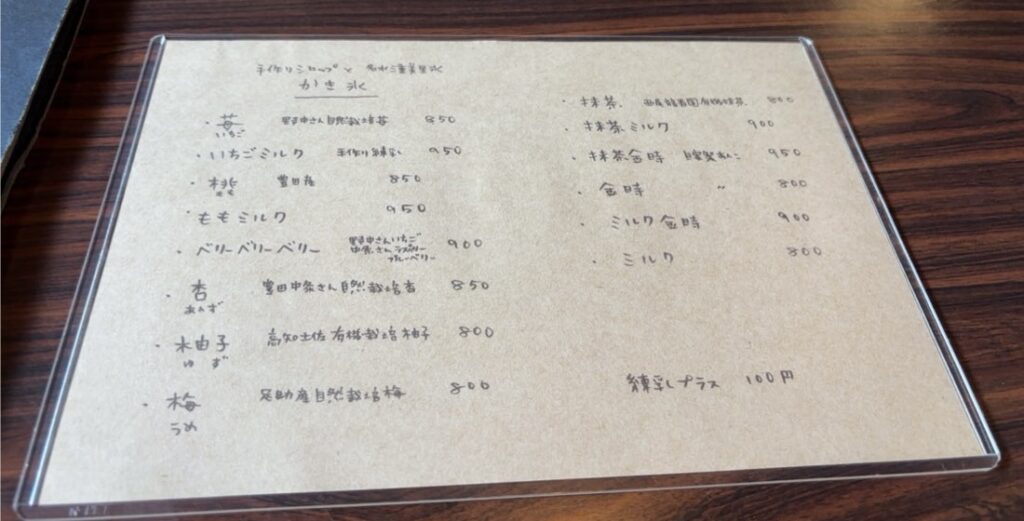 手作りシロップと
かき氷
・苺 野中さん自然栽培苺 850
いちご
・いちごミルク 手作り練乳 950
・桃 豊田産 850
もも
ももミルク 950
・ベリーベリーベリー 野中さんいちご 900
中条さんラズベリー
ブルーベリー
・杏 豊田中条さん自然栽培杏 850
あんず
・柚子 高知土佐有機栽培柚子 800
ゆず
・梅 足助産自然栽培梅 800
うめ
・抹茶 800
・抹茶ミルク 900
・抹茶金時 自家製あんこ 950
・金時 〃 800
・ミルク金時 900
・ミルク 800
練乳プラス 100円